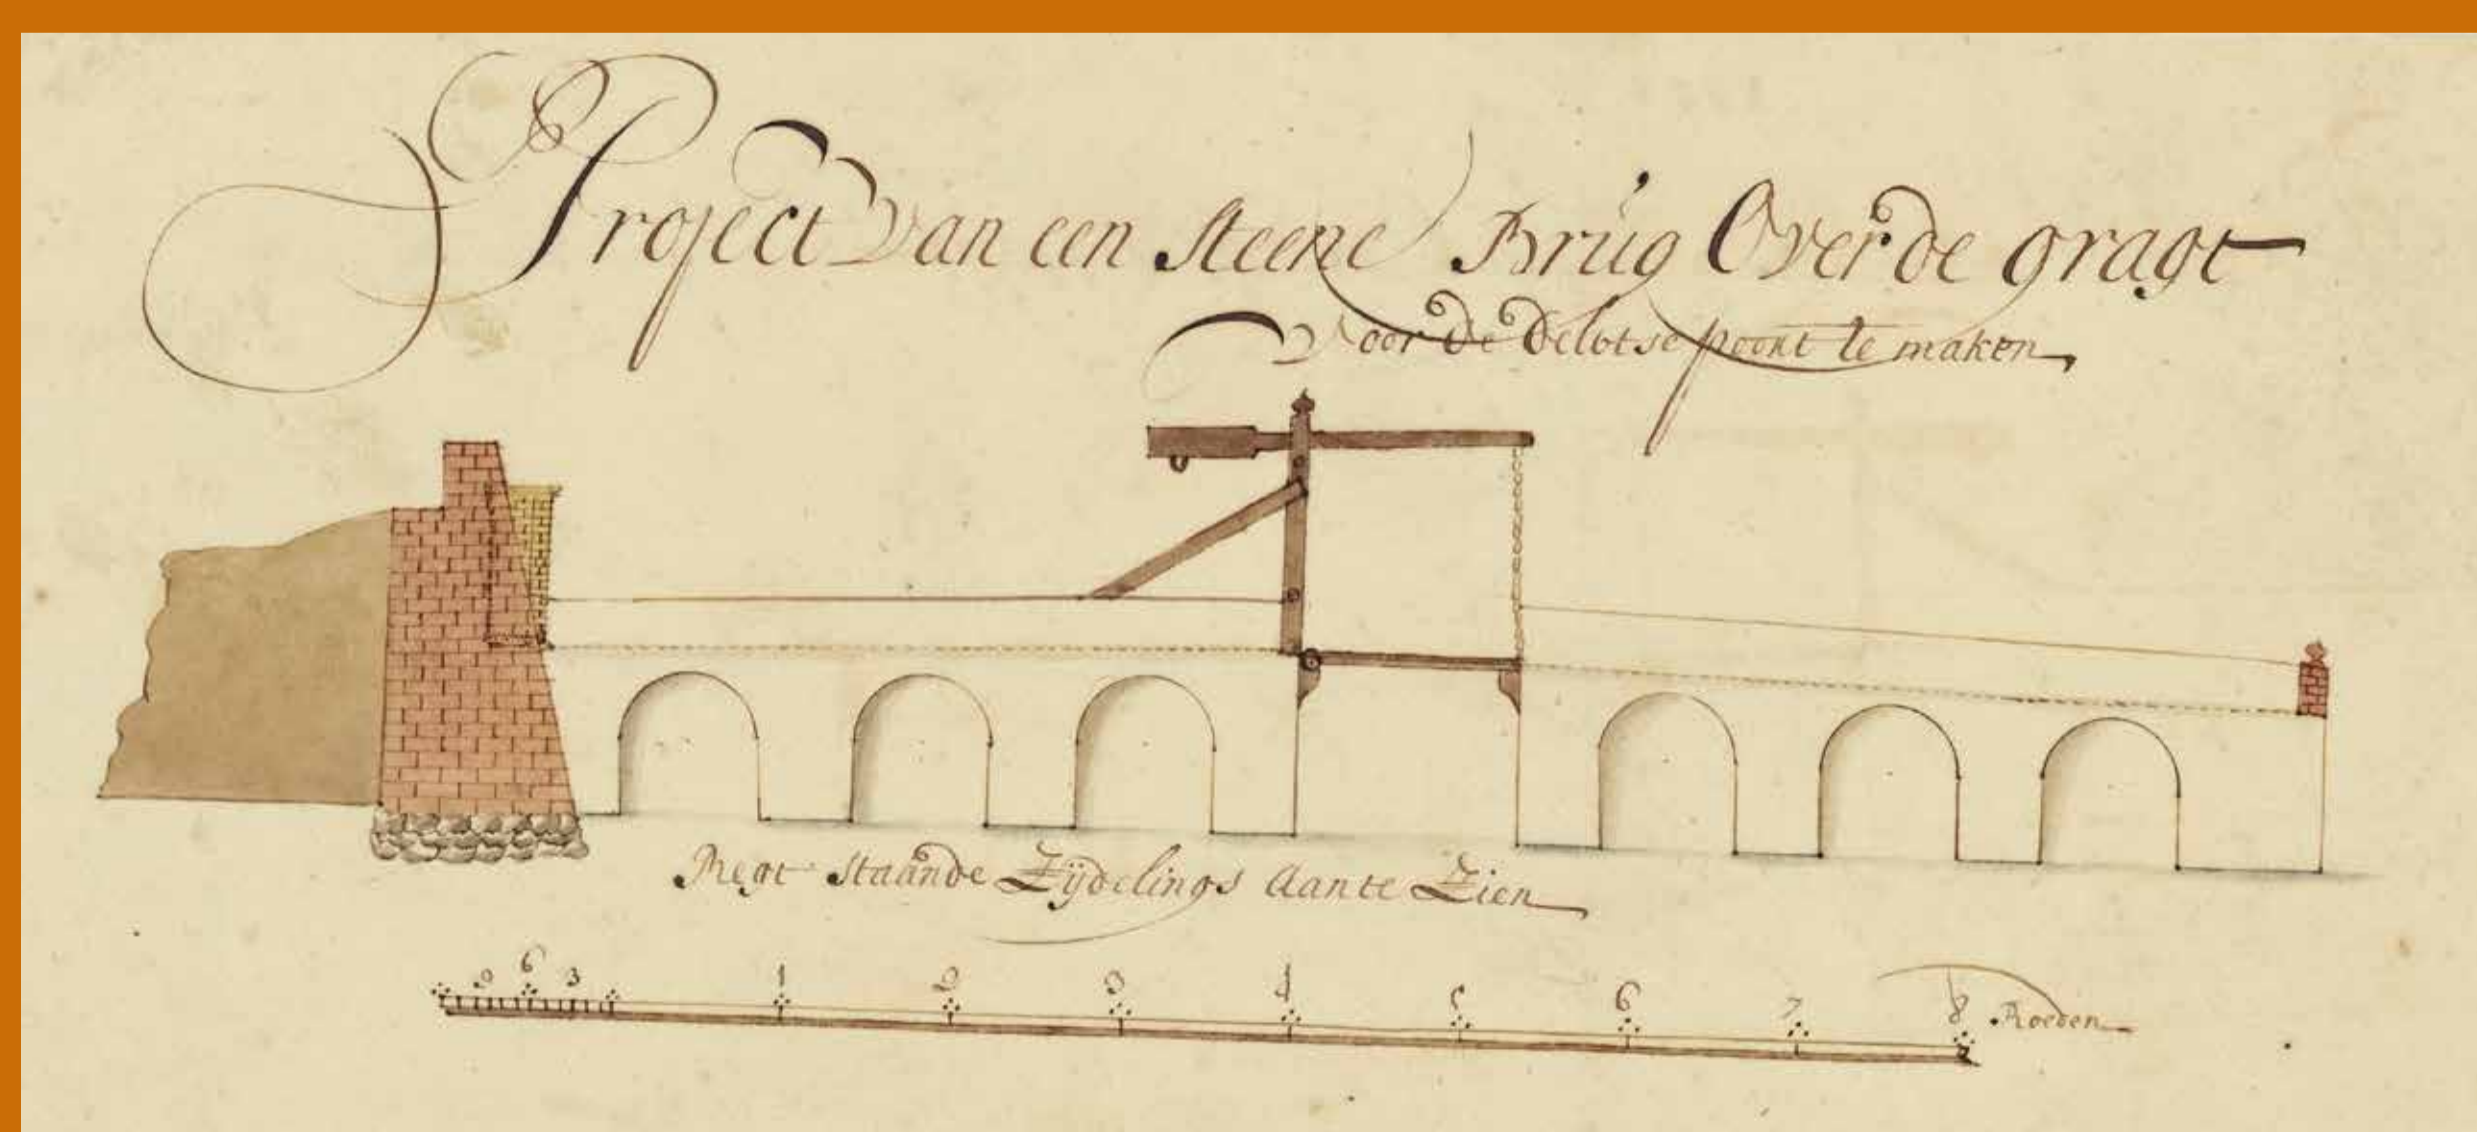 Project van een steene Brùg Over de gragt
Voor de Delvtse poort te maken
Regt staande Zijdelings Aan te Zien
9 6 3 1 2 3 4 5 6 7 8 Roeden